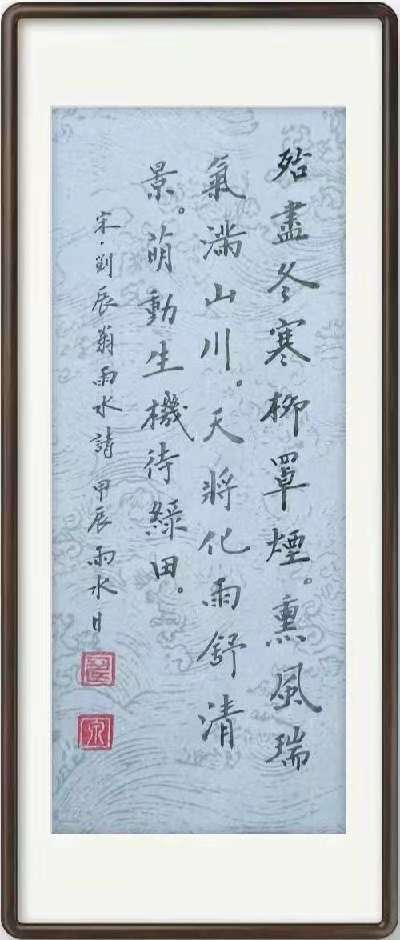 殆盡冬寒柳罩煙。熏風瑞
氣滿山川。天將化雨舒清
景。萌動生機待綠田。
宋·劉辰翁雨水詩 甲辰雨水日